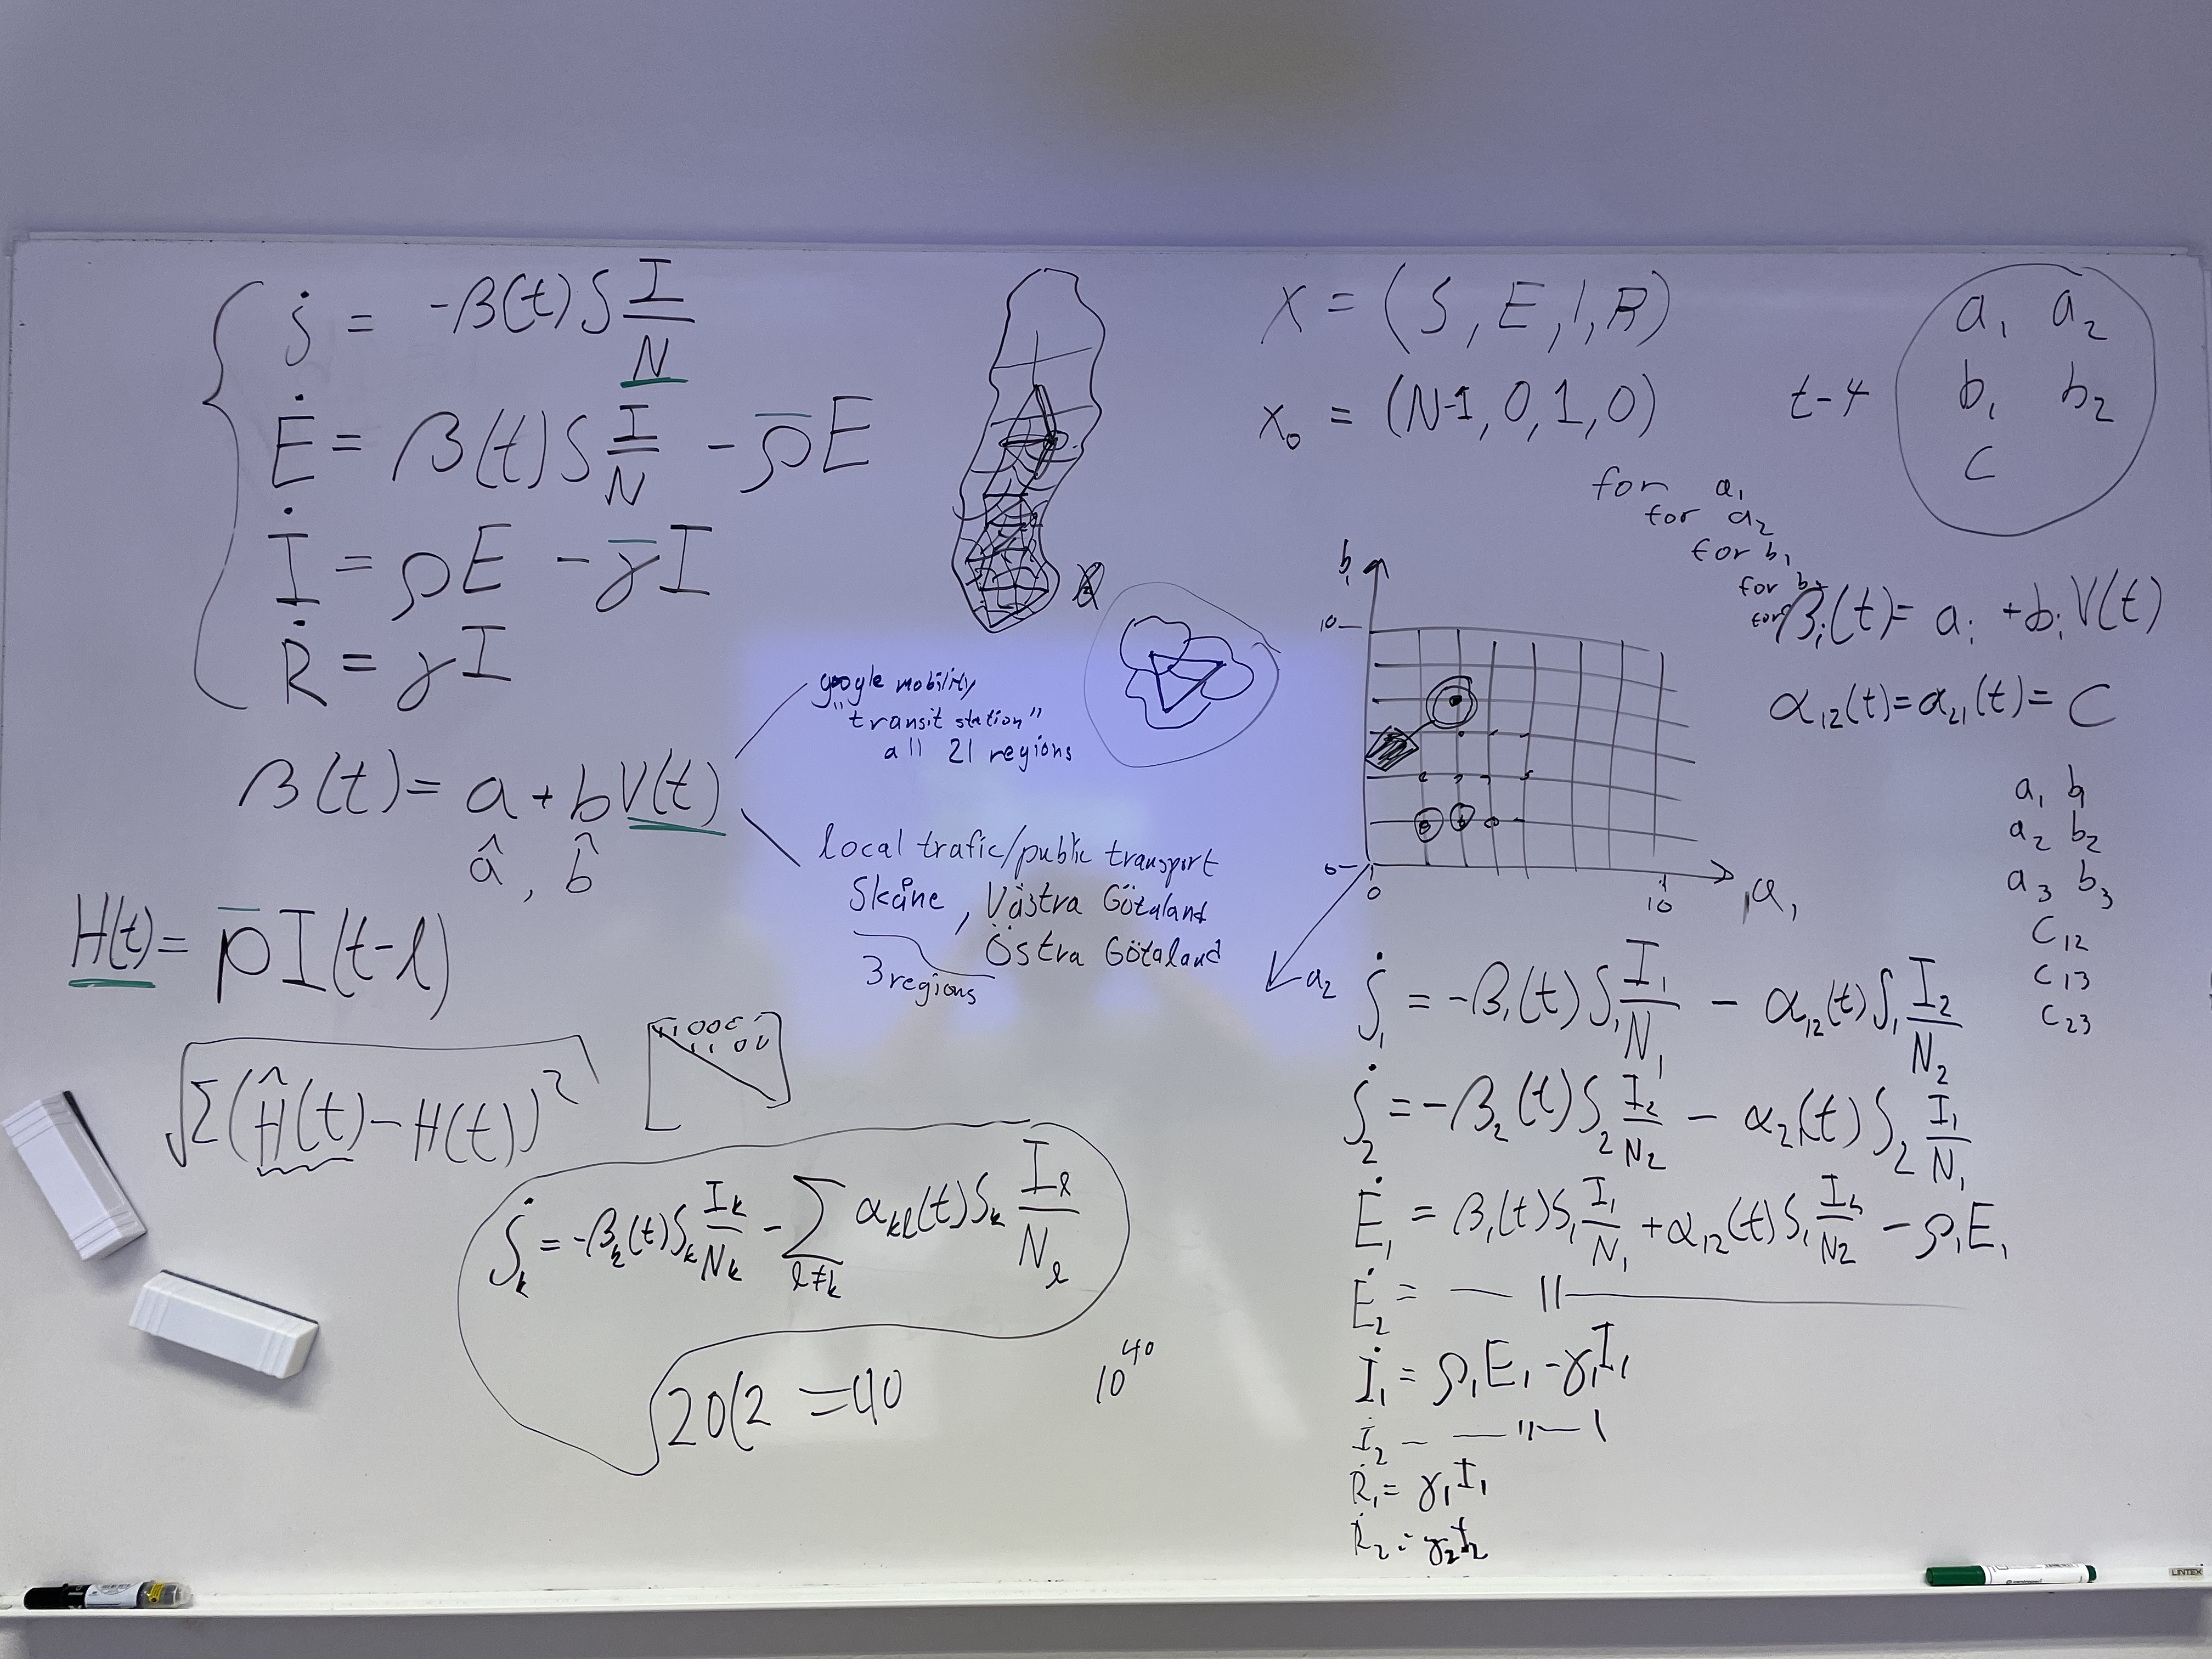 Ṡ = -β(t) S I/N
Ė = β(t) S I/N - ρE
İ = ρE - γI
Ṙ = γI
β(t) = a + b V(t)
â , b̂
H(t) = p I(t-l)
√Σ(Ĥ(t) - H(t))²
google mobility
"transit station"
all 21 regions
local trafic/public transport
Skåne, Västra Götaland
Östra Götaland
3 regions
Ṡk = -βk(t) Sk Ik/Nk - Σ l≠k αkl(t) Sk Il/Nl
20(2 = 40
10^40
X = (S, E, I, R)
x₀ = (N-1, 0, 1, 0)
t-4
a₁ a₂
b₁ b₂
c
for a₁
for a₂
for b₁
for b₂
for
βi(t) = ai + bi V(t)
α₁₂(t) = α₂₁(t) = C
b₁
10
0
0
10
a₁
a₂
a₁ b₁
a₂ b₂
a₃ b₃
C₁₂
C₁₃
C₂₃
Ṡ₁ = -β₁(t) S₁ I₁/N₁ - α₁₂(t) S₁ I₂/N₂
Ṡ₂ = -β₂(t) S₂ I₂/N₂ - α₂₁(t) S₂ I₁/N₁
Ė₁ = β₁(t) S₁ I₁/N₁ + α₁₂(t) S₁ I₂/N₂ - ρ₁E₁
Ė₂ = — 11 —
İ₁ = ρ₁E₁ - γ₁I₁
İ₂ - — 11 —
Ṙ₁ = γ₁I₁
Ṙ₂ = γ₂I₂
LINTEX